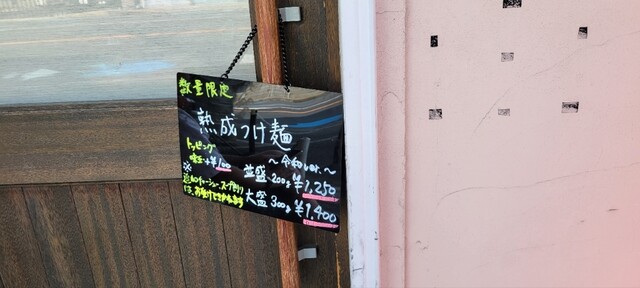 数量限定
熟成つけ麺
〜令和ver.〜
トッピング
味玉+¥100
並盛 200g ¥1,250
大盛 300g ¥1,400
※